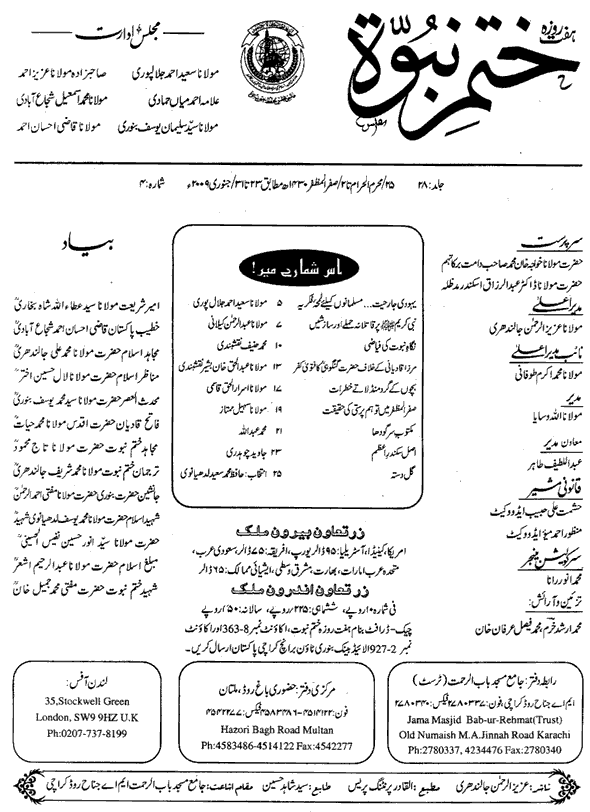 ہفت روزہ
ختم نبوۃ
مجلس ادارت
مولانا سعید احمد جلالپوری صاحبزادہ مولانا عزیز احمد
علامہ احمد میاں حمادی مولانا محمد اسمعیل شجاع آبادی
مولانا سید سلیمان یوسف بنوری مولانا قاضی احسان احمد
جلد: ۲۸ ۲۵/محرم الحرام تا ۲/صفر المظفر ۱۴۳۰ھ مطابق ۲۳ تا ۳۱/جنوری ۲۰۰۹ء شمارہ: ۴
سرپرست
حضرت مولانا خواجہ خان محمد صاحب دامت برکاتہم
حضرت مولانا ڈاکٹر عبدالرزاق اسکندر مدظلہ
مدیر اعلیٰ
مولانا عزیز الرحمٰن جالندھری
نائب مدیر اعلیٰ
مولانا محمد اکرم طوفانی
مدیر
مولانا اللہ وسایا
معاون مدیر
عبداللطیف طاہر
قانونی مشیر
حشمت علی حبیب ایڈووکیٹ
منظور احمد میؤ ایڈووکیٹ
سرکولیشن منیجر
محمد انور رانا
تزئین و آرائش:
محمد ارشد خرم، محمد فیصل عرفان خان
اس شمارے میں!
یہودی جارحیت... مسلمانوں کیلئے لمحۂ فکریہ ۵ مولانا سعید احمد جلال پوری
نبی کریم ﷺ پر قاتلانہ حملے اور سازشیں ۷ مولانا عبدالرحمٰن کیلانی
نگاہ نبوت کی فیاضی ۱۰ محمد حنیف نقشبندی
مرزا قادیانی کے خلاف حضرت گنگوہیؒ کا فتویٰ کفر ۱۳ مولانا عبدالحق خان بشیر نقشبندی
بچوں کے گرد منڈلاتے خطرات ۱۷ مولانا اسرار الحق قاسمی
صفر المظفر میں توہم پرستی کی حقیقت ۱۹ مولانا سہیل ممتاز
مکتوب سرگودھا ۲۱ محمد عبداللہ
اصل سکندر اعظم ۲۳ جاوید چوہدری
گل دستہ ۲۵ انتخاب: حافظ محمد سعید لدھیانوی
زر تعاون بیرون ملک
امریکا، کینیڈا، آسٹریلیا: ۹۵ ڈالر یورپ، افریقہ: ۷۵ ڈالر سعودی عرب،
متحدہ عرب امارات، بھارت، مشرق وسطیٰ، ایشیائی ممالک: ۶۵ ڈالر
زر تعاون اندرون ملک
فی شمارہ ۱۰ روپے، ششماہی: ۲۲۵ روپے، سالانہ: ۴۵۰ روپے
چیک-ڈرافٹ بنام ہفت روزہ ختم نبوت، اکاؤنٹ نمبر 8-363 اور اکاؤنٹ
نمبر 2-927 الائیڈ بینک بنوری ٹاؤن برانچ کراچی پاکستان ارسال کریں۔
بیاد
امیر شریعت مولانا سید عطاء اللہ شاہ بخاریؒ
خطیب پاکستان قاضی احسان احمد شجاع آبادیؒ
مجاہد اسلام حضرت مولانا محمد علی جالندھریؒ
مناظر اسلام حضرت مولانا لال حسین اخترؒ
محدث العصر حضرت مولانا سید محمد یوسف بنوریؒ
فاتح قادیان حضرت اقدس مولانا محمد حیاتؒ
مجاہد ختم نبوت حضرت مولانا تاج محمودؒ
ترجمان ختم نبوت حضرت مولانا محمد شریف جالندھریؒ
جانشین حضرت بنوری حضرت مولانا مفتی احمد الرحمٰنؒ
شہید اسلام حضرت مولانا محمد یوسف لدھیانوی شہیدؒ
حضرت مولانا سید انور حسین نفیس الحسینیؒ
مبلغ اسلام حضرت مولانا عبدالرحیم اشعرؒ
شہید ختم نبوت حضرت مفتی محمد جمیل خانؒ
رابطہ دفتر: جامع مسجد باب الرحمت (ٹرسٹ)
ایم اے جناح روڈ کراچی، فون: ۲۷۸۰۳۳۷ فیکس: ۲۷۸۰۳۴۰
Jama Masjid Bab-ur-Rehmat(Trust)
Old Numaish M.A.Jinnah Road Karachi
Ph:2780337, 4234476 Fax:2780340
مرکزی دفتر: حضوری باغ روڈ، ملتان
فون: ۴۵۸۳۴۸۶-۴۵۱۴۱۲۲ فیکس: ۴۵۴۲۲۷۷
Hazori Bagh Road Multan
Ph:4583486-4514122 Fax:4542277
لندن آفس:
35,Stockwell Green
London, SW9 9HZ U.K
Ph:0207-737-8199
ناشر: عزیز الرحمٰن جالندھری مطبع: القادر پرنٹنگ پریس طابع: سید شاہد حسین مقام اشاعت: جامع مسجد باب الرحمت ایم اے جناح روڈ کراچی